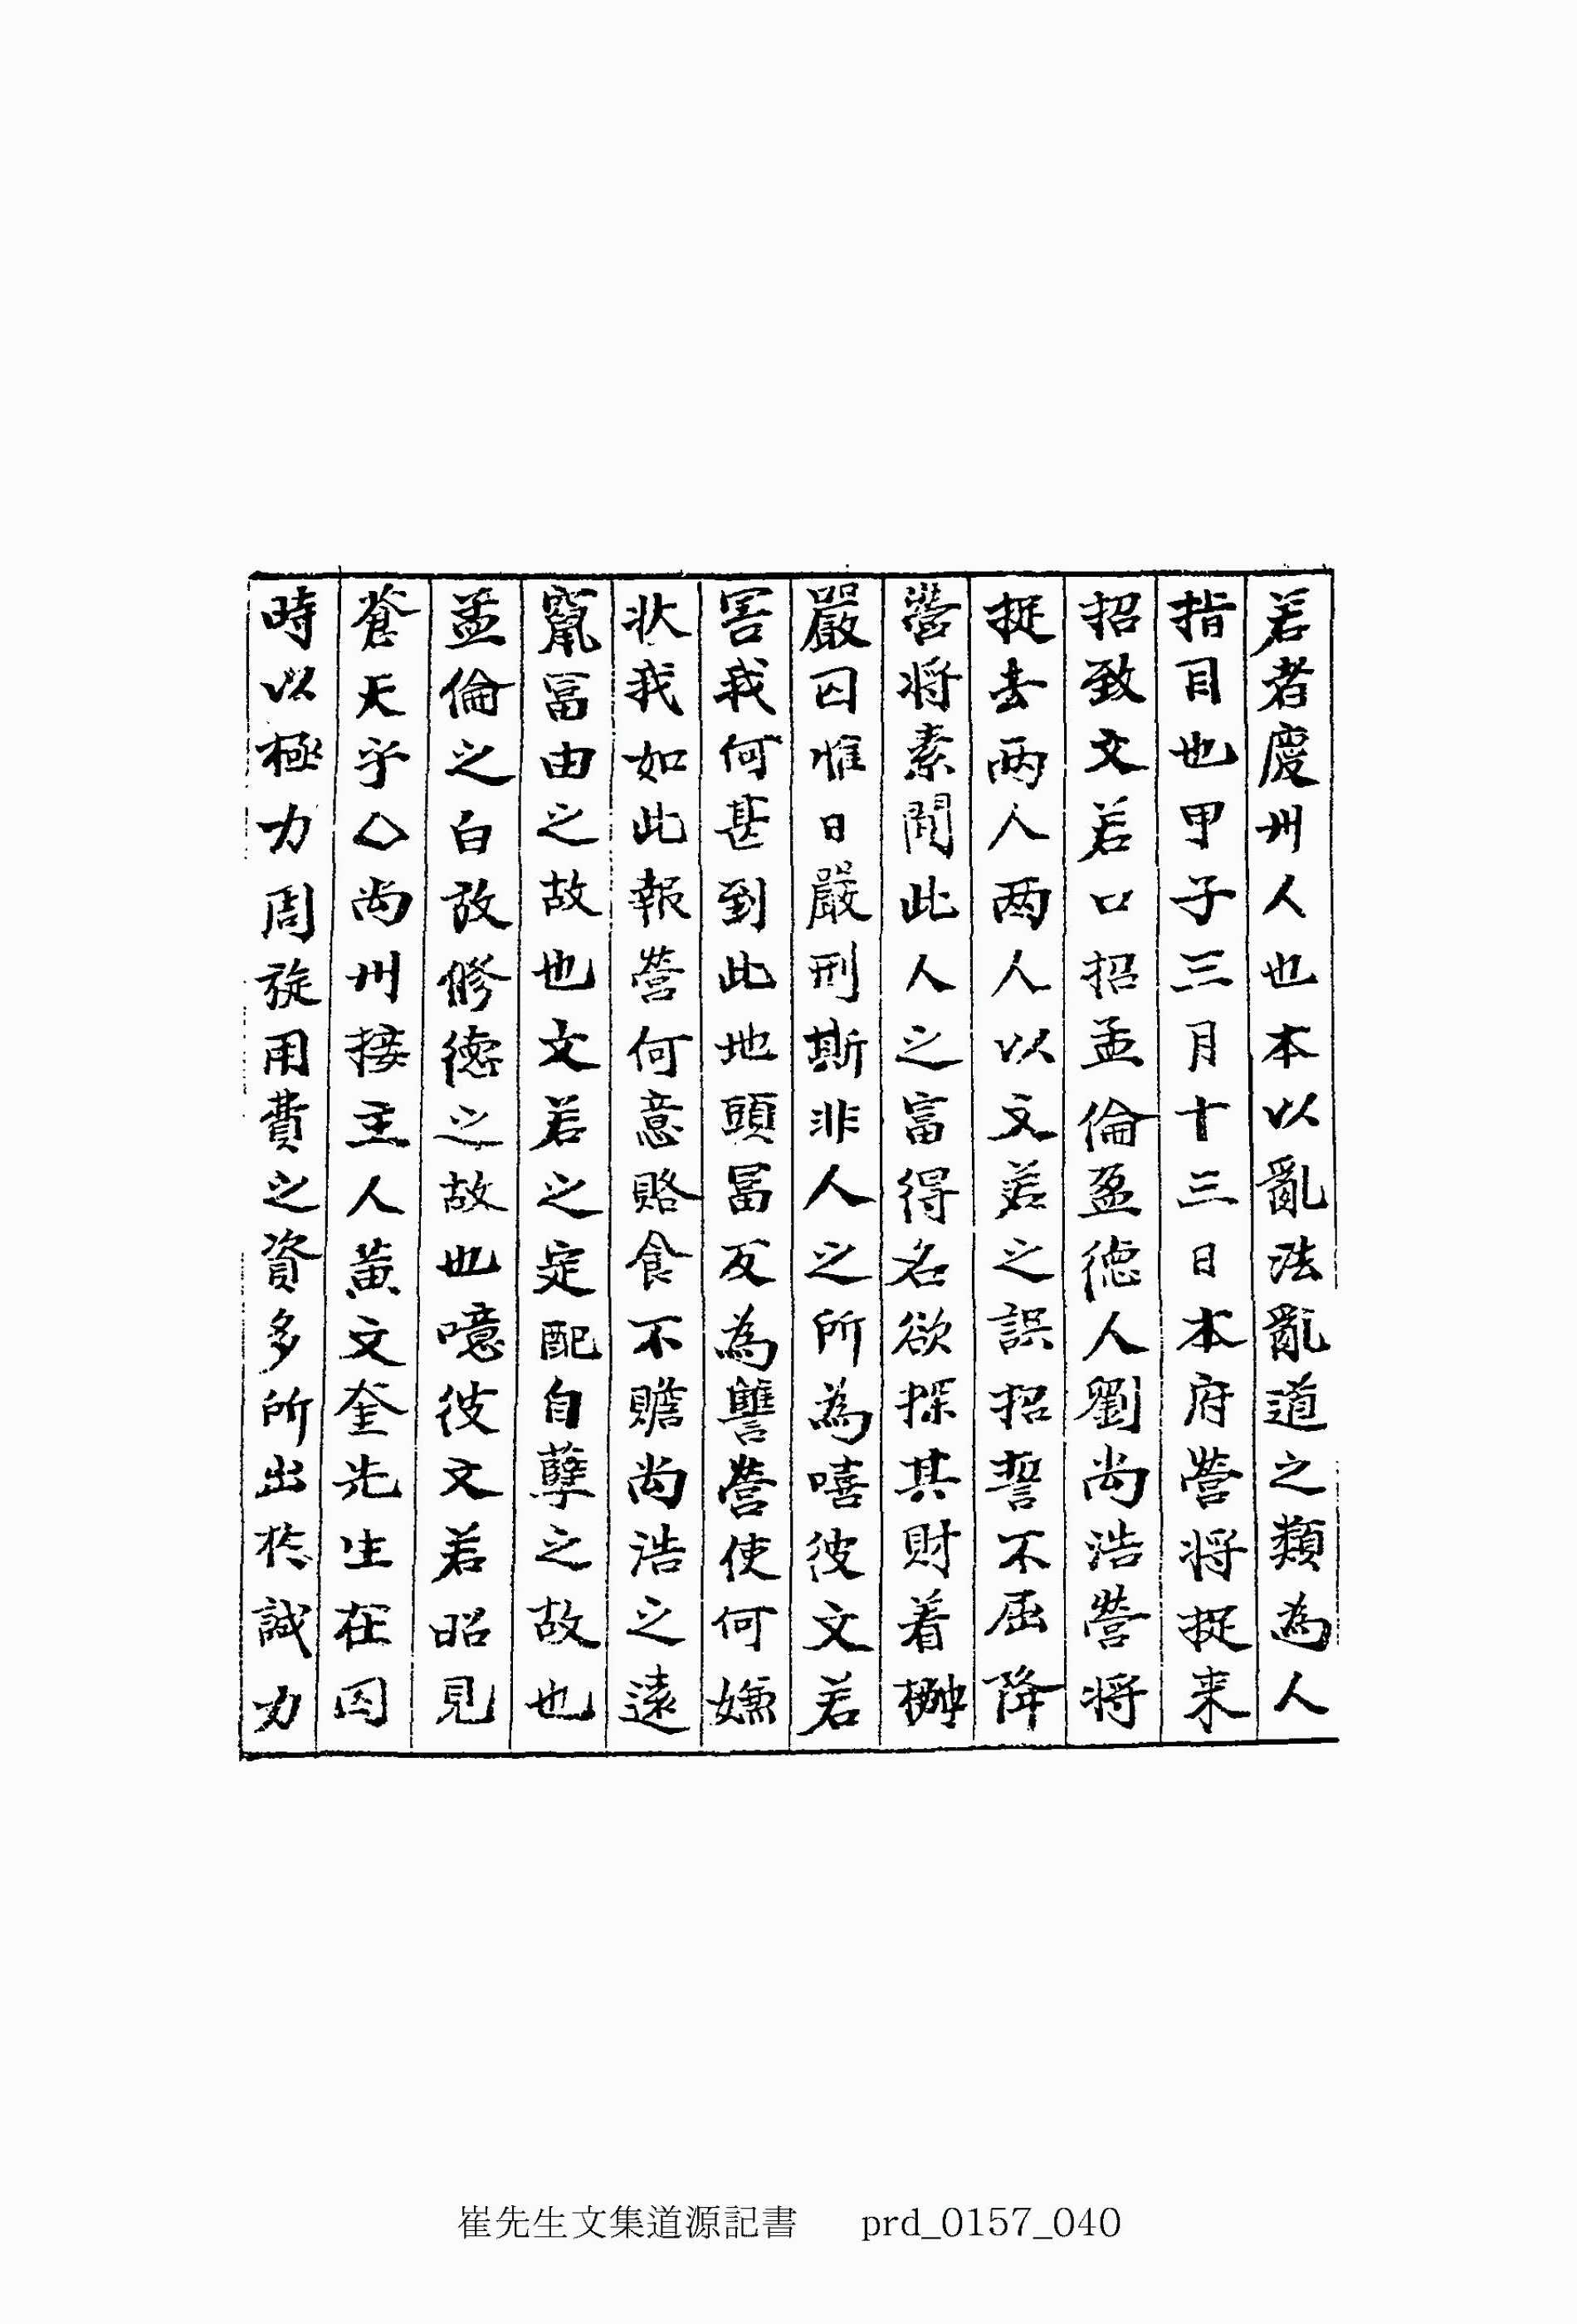 若者慶州人也本以亂法亂道之類為人
指目也甲子三月十三日本府營將捉来
招致文若口招孟倫盈德人劉尚浩營將
捉去兩人兩人以文若之誤招誓不屈降
營將素聞此人之富得名欲探其財着枷
嚴囚惟日嚴刑斯非人之所為嘻彼文若
害我何甚到此地頭冨反為讐營使何嫌
狀我如此報營何意賂食不贍尚浩之遠
竄冨由之故也文若之定配自孽之故也
孟倫之白放修德之故也噫彼文若昭見
蒼天乎◇尚州接主人黃文奎先生在囚
時以極力周旋用費之資多所出於誠力
崔先生文集道源記書 prd_0157_040